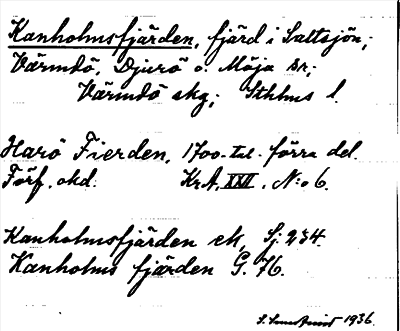 Kanholmsfjärden, fjärd i Saltsjön;
Värmdö, Djurö o. Möja sr;
Värmdö skg; Sthlms l.
Harö Fierden, 1700-tal. förra del.
Förf. okd. KrA, XXVI, N:o 6.
Kanholmsfjärden ek, Sj 234.
Kanholms fjärden G. 76.
1936.